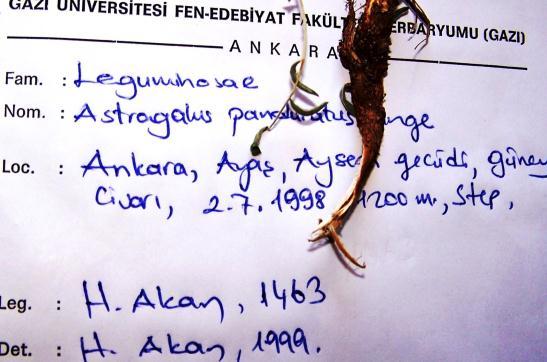 GAZİ ÜNİVERSİTESİ FEN-EDEBİYAT HERBARYUMU (GAZI)
ANKARA
Fam. : Leguminosae
Nom. : Astragalus
Loc. : Ankara, Ayaş, geçidi, güney
Civarı, 2.7.1998 1200 m., Step,
Leg. : H. Akan, 1463
Det. : H. Akan, 1999.